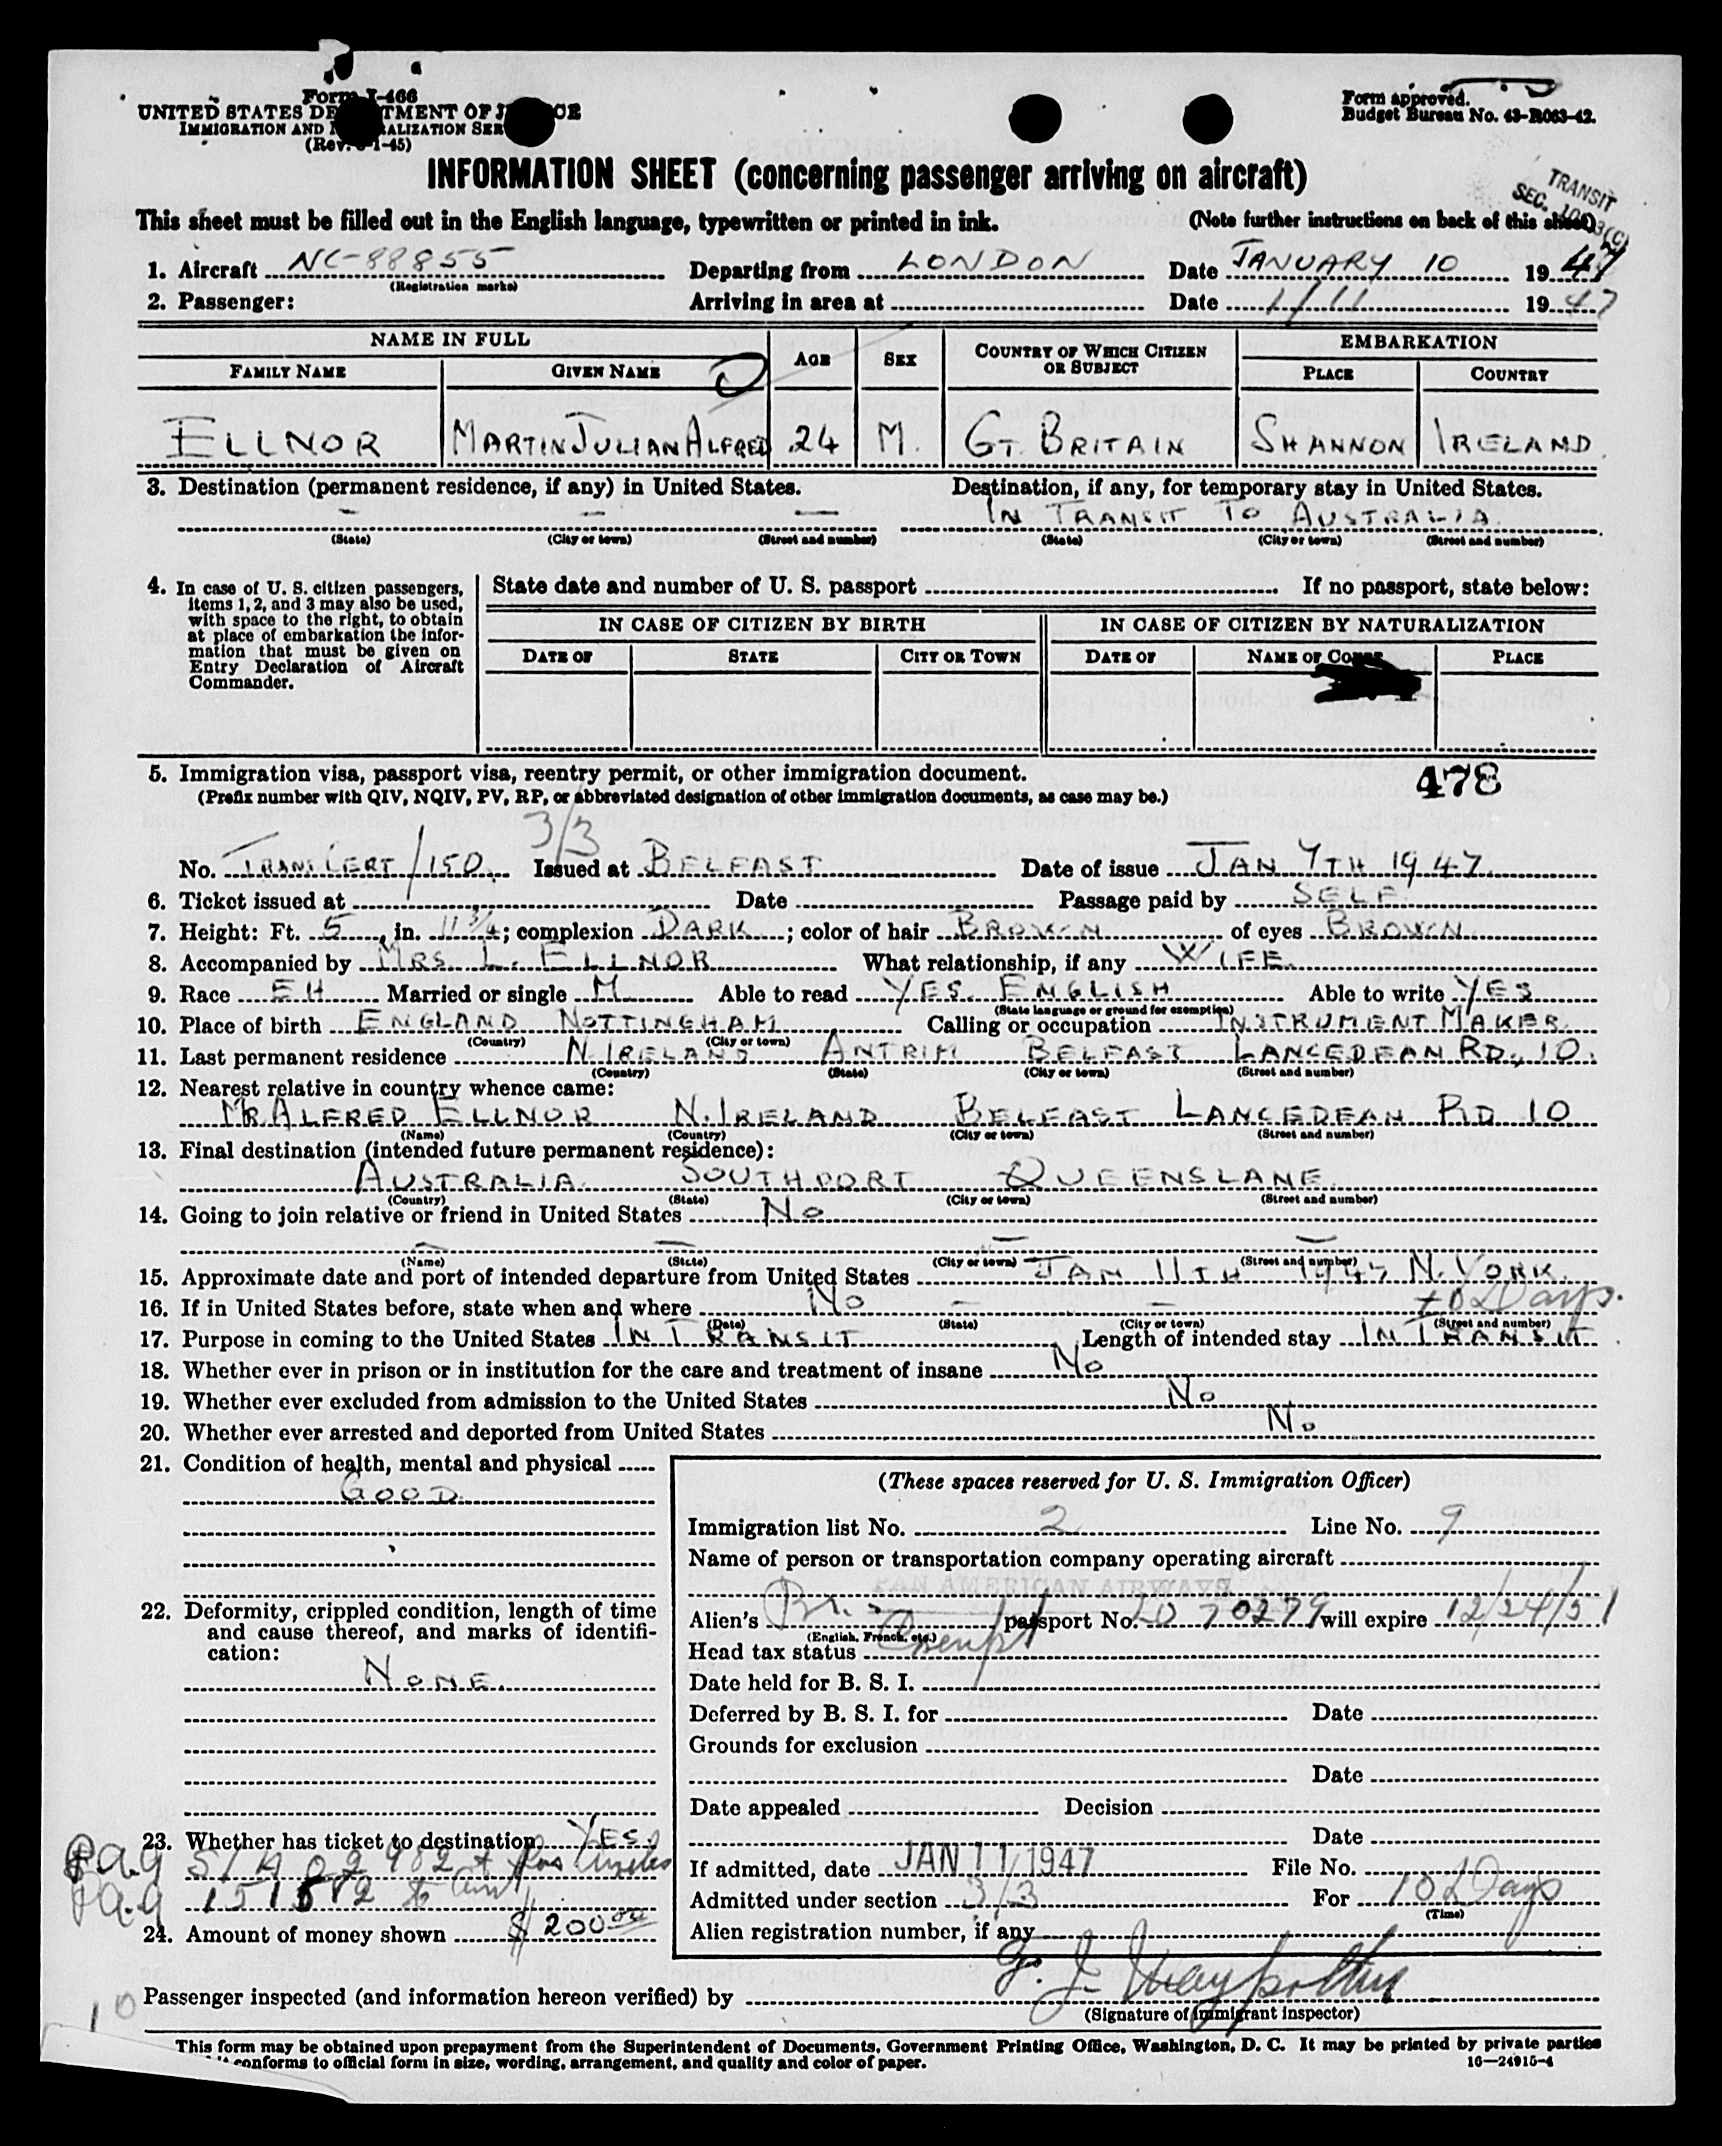 Form I-466
UNITED STATES DEPARTMENT OF JUSTICE
IMMIGRATION AND NATURALIZATION SER
(Rev. 1-45)
Form approved.
Budget Bureau No. 43-R063-42.
INFORMATION SHEET (concerning passenger arriving on aircraft)
TRANSIT
SEC.
This sheet must be filled out in the English language, typewritten or printed in ink. (Note further instructions on back of this sheet)
1. Aircraft NC-88855 Departing from LONDON Date JANUARY 10 1947
(Registration marks)
2. Passenger: Arriving in area at Date 1/11 1947
NAME IN FULL AGE SEX COUNTRY OF WHICH CITIZEN OR SUBJECT EMBARKATION
FAMILY NAME GIVEN NAME PLACE COUNTRY
ELLNOR MARTIN JULIAN ALFRED 24 M. GT. BRITAIN SHANNON IRELAND
3. Destination (permanent residence, if any) in United States. Destination, if any, for temporary stay in United States.
— — — IN TRANSIT TO AUSTRALIA
(State) (City or town) (Street and number) (State) (City or town) (Street and number)
4. In case of U. S. citizen passengers, items 1, 2, and 3 may also be used, with space to the right, to obtain at place of embarkation the information that must be given on Entry Declaration of Aircraft Commander.
State date and number of U. S. passport If no passport, state below:
IN CASE OF CITIZEN BY BIRTH IN CASE OF CITIZEN BY NATURALIZATION
DATE OF STATE CITY OR TOWN DATE OF NAME OF PLACE
5. Immigration visa, passport visa, reentry permit, or other immigration document. 478
(Prefix number with QIV, NQIV, PV, RP, or abbreviated designation of other immigration documents, as case may be.)
3/3
No. TRANS CERT/150. Issued at BELFAST Date of issue JAN 7TH 1947
6. Ticket issued at Date Passage paid by SELF
7. Height: Ft. 5, in. 11 3/4; complexion DARK; color of hair BROWN of eyes BROWN
8. Accompanied by MRS L. ELLNOR What relationship, if any WIFE
9. Race EH Married or single M Able to read YES ENGLISH Able to write YES
(State language or ground for exemption)
10. Place of birth ENGLAND NOTTINGHAM Calling or occupation INSTRUMENT MAKER
(Country) (City or town)
11. Last permanent residence N. IRELAND ANTRIM BELFAST LANCEDEAN RD, 10.
(Country) (State) (City or town) (Street and number)
12. Nearest relative in country whence came:
MR. ALFRED ELLNOR N. IRELAND BELFAST LANCEDEAN RD 10
(Name) (Country) (City or town) (Street and number)
13. Final destination (intended future permanent residence):
AUSTRALIA SOUTHPORT QUEENSLANE
(Country) (State) (City or town) (Street and number)
14. Going to join relative or friend in United States NO
— — — —
(Name) (State) (City or town) (Street and number)
15. Approximate date and port of intended departure from United States JAN 11TH 1947 N. YORK.
16. If in United States before, state when and where NO — — 10 Days.
(Date) (State) (City or town) (Street and number)
17. Purpose in coming to the United States IN TRANSIT Length of intended stay IN TRANSIT
18. Whether ever in prison or in institution for the care and treatment of insane NO
19. Whether ever excluded from admission to the United States NO
20. Whether ever arrested and deported from United States NO
21. Condition of health, mental and physical
GOOD
22. Deformity, crippled condition, length of time and cause thereof, and marks of identification:
NONE.
23. Whether has ticket to destination YES.
to Los Angeles
to
24. Amount of money shown $200.00
(These spaces reserved for U. S. Immigration Officer)
Immigration list No. 2 Line No. 9
Name of person or transportation company operating aircraft
PAN AMERICAN AIRWAYS
Alien's passport No. 70279 will expire 12/24/51
(English, French, etc.)
Head tax status Exempt
Date held for B. S. I.
Deferred by B. S. I. for Date
Grounds for exclusion
Date
Date appealed Decision
Date
If admitted, date JAN 11 1947 File No.
Admitted under section 3/3 For 10 Days
(Time)
Alien registration number, if any
Passenger inspected (and information hereon verified) by
(Signature of immigrant inspector)
10
This form may be obtained upon prepayment from the Superintendent of Documents, Government Printing Office, Washington, D. C. It may be printed by private parties
conforms to official form in size, wording, arrangement, and quality and color of paper. 16—24915-4